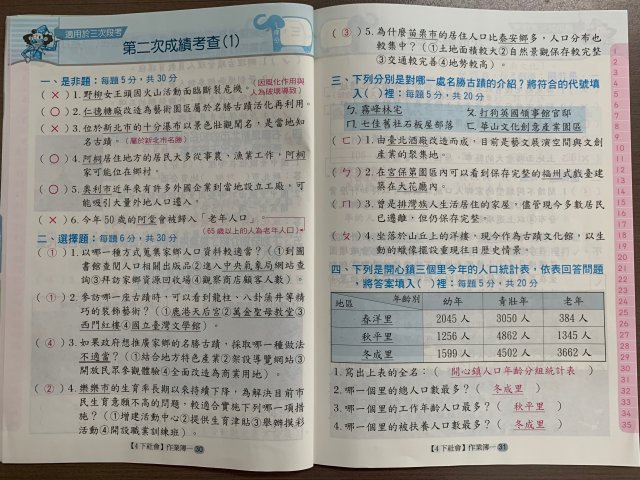 適用於三次段考
第二次成績考查(1)
一、是非題：每題5分，共30分
(因風化作用與人為破壞導致)
(×)1.野柳女王頭因火山活動面臨斷裂危機。
(○)2.仁德糖廠改造為藝術園區屬於名勝古蹟活化再利用。
(×)3.位於新北市的十分瀑布以景色壯觀聞名，是當地知
名古蹟。(屬於新北市名勝)
(○)4.阿桐居住地方的居民大多從事農、漁業工作，阿桐
家可能位在鄉村。
(○)5.奧利市近年來有許多外國企業到當地設立工廠，可
能吸引大量外地人口遷入。
(×)6.今年50歲的阿堂會被歸入「老年人口」。
(65歲以上的人為老年人口)
二、選擇題：每題6分，共30分
(①)1.以哪一種方式蒐集家鄉人口資料較適當？(①到圖
書館查閱人口相關出版品②進入中央氣象局網站查
詢③拜訪家鄉資源回收場④觀察商店顧客人數)
(①)2.參訪哪一座古蹟時，可以看到龍柱、八卦藻井等精
巧的裝飾藝術？(①鹿港天后宮②萬金聖母教堂③
西門紅樓④國立臺灣文學館)。
(④)3.如果政府想推廣家鄉的名勝古蹟，採取哪一種做法
不適當？(①結合地方特色產業②架設導覽網站③
開放民眾參觀體驗④全面改造為商業用地)。
(②)4.樂樂市的生育率長期以來持續下降，為解決目前市
民生育意願不高的問題，較適合實施下列哪一項措
施？(①增建活動中心②提供生育津貼③舉辦摸彩
活動④開設職業訓練班)。
【4下社會】作業簿—30
(③)5.為什麼苗栗市的居住人口比泰安鄉多，人口分布也
較集中？(①土地面積較大②自然景觀保存較完整
③交通較完善④地勢較高)。
三、下列分別是對哪一處名勝古蹟的介紹？將符合的代號填
入( )裡：每題5分，共20分
ㄅ霧峰林宅 ㄆ打狗英國領事館官邸
ㄇ七佳舊社石板屋部落 ㄈ華山文化創意產業園區
(ㄈ)1.由臺北酒廠改造而成，目前是藝文展演空間與文創
產業的聚集地。
(ㄅ)2.在宮保第園區內可以看到保存完整的福州式戲臺建
築在大花廳內。
(ㄇ)3.曾是排灣族人生活居住的家屋，儘管現今多數居民
已遷離，但仍保存完整。
(ㄆ)4.坐落於山丘上的洋樓，現今作為古蹟文化館，以生
動的蠟像擺設重現往日歷史情景。
四、下列是開心鎮三個里今年的人口統計表，依表回答問題，
將答案填入( )裡：每題5分，共20分
地區 年齡別 幼年 青壯年 老年
春洋里 2045人 3050人 384人
秋平里 1256人 4862人 1345人
冬成里 1599人 4502人 3662人
1.寫出上表的全名：(開心鎮人口年齡分組統計表)
2.哪一個里的總人口數最多？(冬成里)
3.哪一個里的工作年齡人口最多？(秋平里)
4.哪一個里的被扶養人口數最多？(冬成里)
【4下社會】作業簿—31